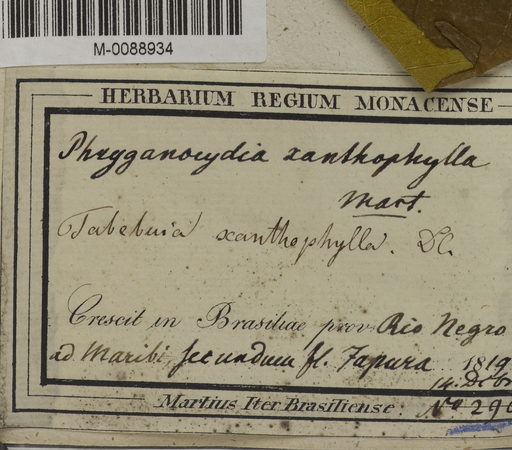 M-0088934
HERBARIUM REGIUM MONACENSE
Phryganocydia xanthophylla
Mart.
Tabebuia xanthophylla. DC.
Crescit in Brasiliae prov. Rio Negro
ad Maribi, secundum fl. Japura 1819
14. Dcbr
Martius Iter Brasiliense. No